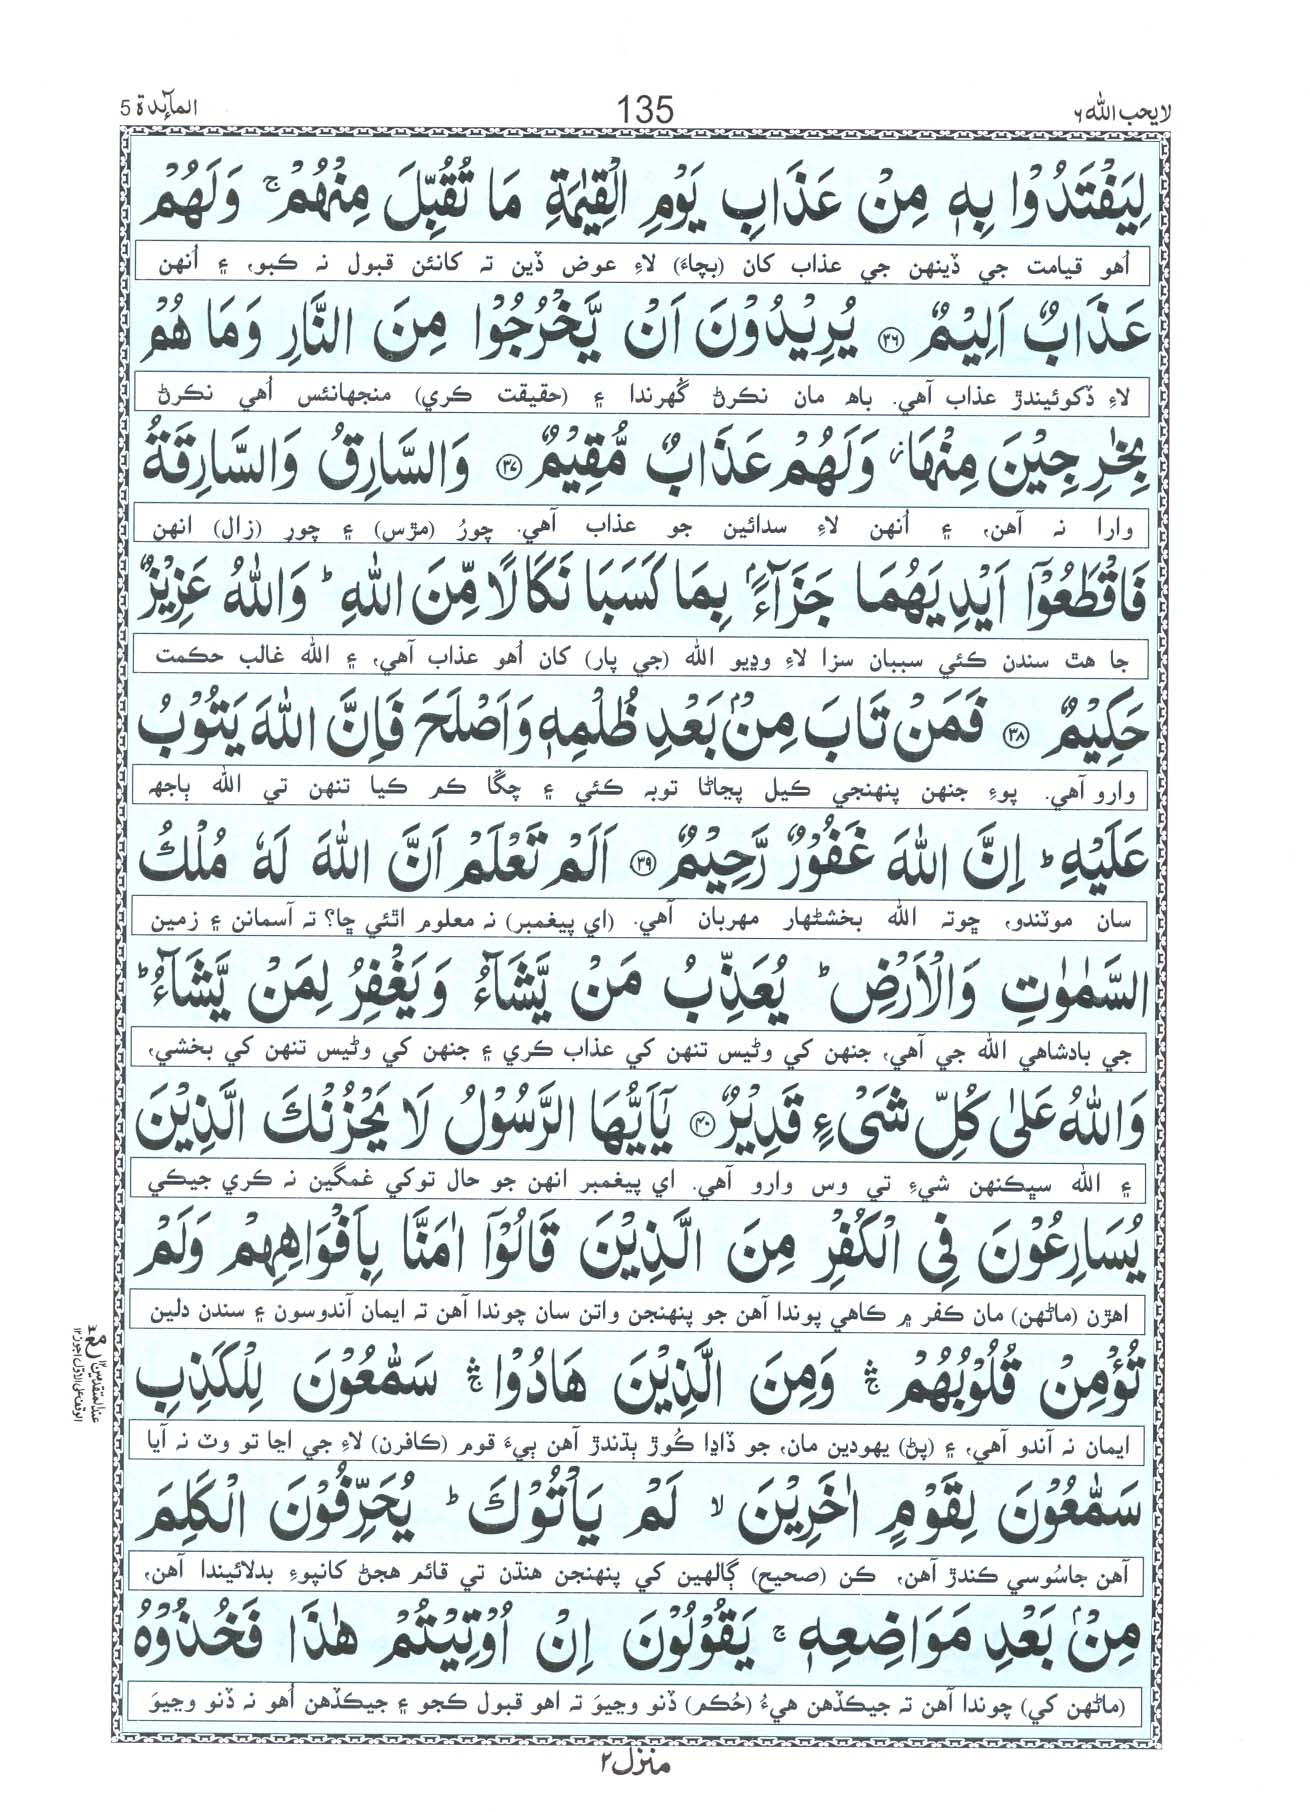 لا يحب الله ٦
135
المآئدة 5
لِيَفْتَدُوْا بِهٖ مِنْ عَذَابِ يَوْمِ الْقِيٰمَةِ مَا تُقُبِّلَ مِنْهُمْ ۚ وَلَهُمْ
اُهو قيامت جي ڏينهن جي عذاب کان (بچاءَ) لاءِ عوض ڏين ته کانئن قبول نہ ڪبو، ۽ اُنهن
عَذَابٌ اَلِيْمٌ ۝۳۶ يُرِيْدُوْنَ اَنْ يَّخْرُجُوْا مِنَ النَّارِ وَمَا هُمْ
لاءِ ڏکوئيندڙ عذاب آهي. باھ مان نڪرڻ گُهرندا ۽ (حقيقت ڪري) منجهانئس اُهي نڪرڻ
بِخٰرِجِيْنَ مِنْهَا ۡ وَلَهُمْ عَذَابٌ مُّقِيْمٌ ۝۳۷ وَالسَّارِقُ وَالسَّارِقَةُ
وارا نہ آهن، ۽ اُنهن لاءِ سدائين جو عذاب آهي. چورُ (مڙس) ۽ چور (زال) انهن
فَاقْطَعُوْٓا اَيْدِيَهُمَا جَزَآءًۢ بِمَا كَسَبَا نَكَالًا مِّنَ اللّٰهِ ؕ وَاللّٰهُ عَزِيْزٌ
جا هٿ سندن ڪئي سببان سزا لاءِ وڍيو الله (جي پار) کان اُهو عذاب آهي، ۽ الله غالب حڪمت
حَكِيْمٌ ۝۳۸ فَمَنْ تَابَ مِنْۢ بَعْدِ ظُلْمِهٖ وَاَصْلَحَ فَاِنَّ اللّٰهَ يَتُوْبُ
وارو آهي. پوءِ جنهن پنهنجي ڪيل پڄاڻا توبہ ڪئي ۽ چڱا ڪم ڪيا تنهن تي الله ٻاجهہ
عَلَيْهِ ؕ اِنَّ اللّٰهَ غَفُوْرٌ رَّحِيْمٌ ۝۳۹ اَلَمْ تَعْلَمْ اَنَّ اللّٰهَ لَهٗ مُلْكُ
سان موٽندو، ڇوته الله بخشڻهار مهربان آهي. (اي پيغمبر) نہ معلوم اٿئي ڇا؟ تہ آسمانن ۽ زمين
السَّمٰوٰتِ وَالْاَرْضِ ؕ يُعَذِّبُ مَنْ يَّشَآءُ وَيَغْفِرُ لِمَنْ يَّشَآءُ ؕ
جي بادشاهي الله جي آهي، جنهن کي وڻيس تنهن کي عذاب ڪري ۽ جنهن کي وڻيس تنهن کي بخشي،
وَاللّٰهُ عَلٰى كُلِّ شَىْءٍ قَدِيْرٌ ۝۴۰ يٰٓاَيُّهَا الرَّسُوْلُ لَا يَحْزُنْكَ الَّذِيْنَ
۽ الله سڀڪنهن شيءِ تي وس وارو آهي. اي پيغمبر انهن جو حال توکي غمگين نہ ڪري جيڪي
يُسَارِعُوْنَ فِى الْكُفْرِ مِنَ الَّذِيْنَ قَالُوْٓا اٰمَنَّا بِاَفْوَاهِهِمْ وَلَمْ
اهڙن (ماڻهن) مان ڪفر ۾ ڪاهي پوندا آهن جو پنهنجن واتن سان چوندا آهن تہ ايمان آندوسون ۽ سندن دلين
تُؤْمِنْ قُلُوْبُهُمْ ۛۚ وَمِنَ الَّذِيْنَ هَادُوْا ۛۚ سَمّٰعُوْنَ لِلْكَذِبِ
ايمان نہ آندو آهي، ۽ (پڻ) يهودين مان، جو ڏاڍا ڪُوڙ ٻڌندڙ آهن ٻيءَ قوم (ڪافرن) لاءِ جي اڃا تو وٽ نہ آيا
سَمّٰعُوْنَ لِقَوْمٍ اٰخَرِيْنَ ۙ لَمْ يَاْتُوْكَ ؕ يُحَرِّفُوْنَ الْكَلِمَ
آهن جاسُوسي ڪندڙ آهن، ڪن (صحيح) ڳالهين کي پنهنجن هنڌن تي قائم هجڻ کانپوءِ بدلائيندا آهن،
مِنْۢ بَعْدِ مَوَاضِعِهٖ ۚ يَقُوْلُوْنَ اِنْ اُوْتِيْتُمْ هٰذَا فَخُذُوْهُ
(ماڻهن کي) چوندا آهن تہ جيڪڏهن هيءُ (حُڪم) ڏنو وڃيوَ تہ اهو قبول ڪجو ۽ جيڪڏهن اُهو نہ ڏنو وڃيوَ
منزل ٢